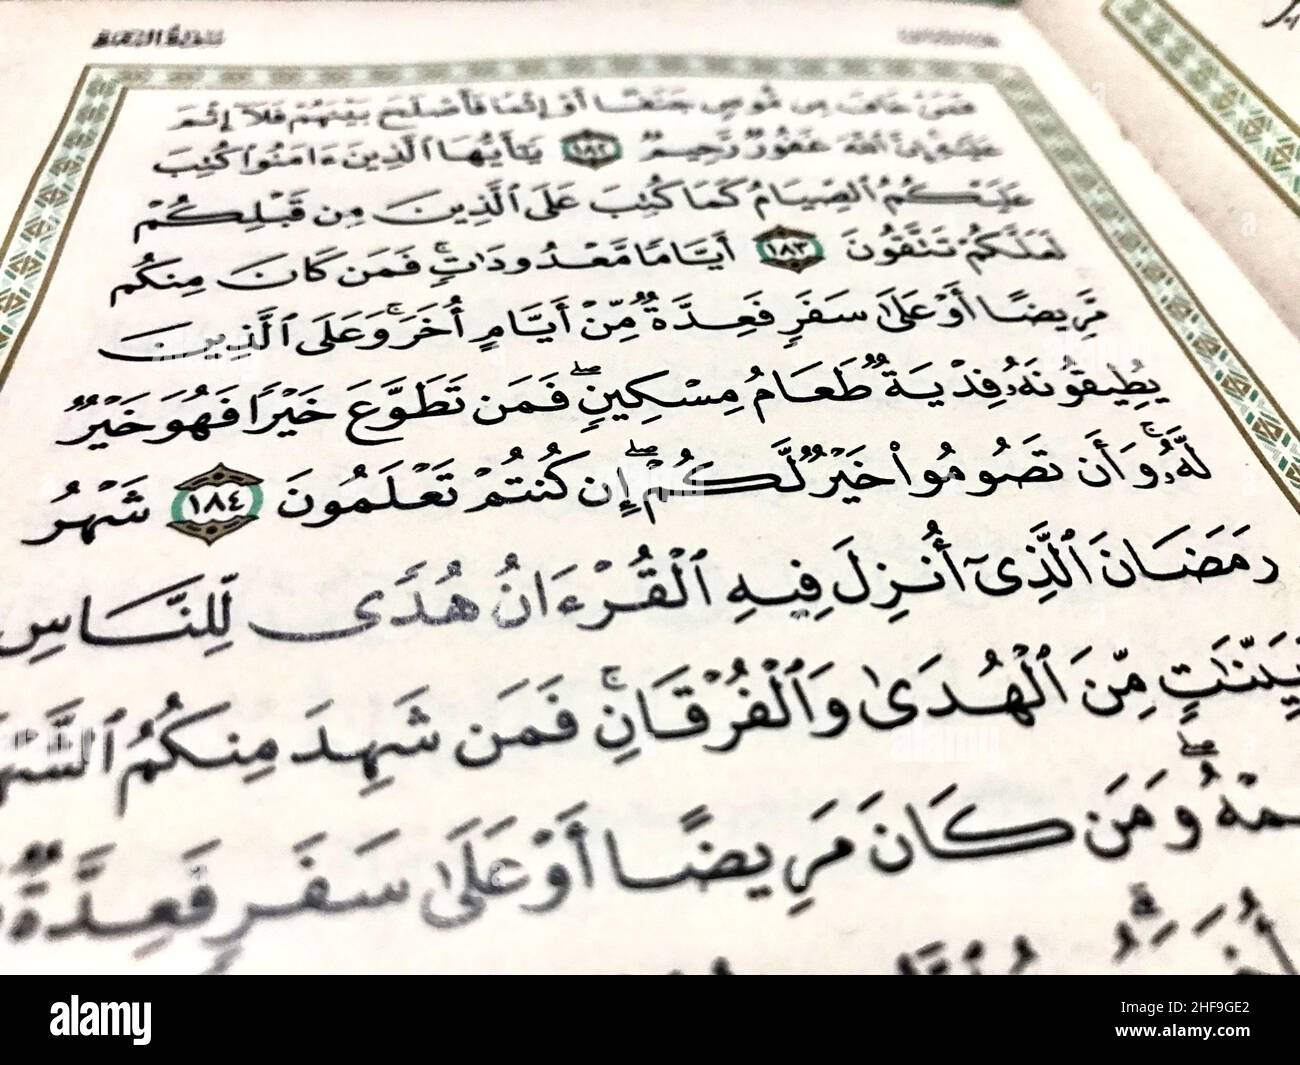 سورة البقرة
فَمَنْ خَافَ مِن مُّوصٍ جَنَفًا أَوْ إِثْمًا فَأَصْلَحَ بَيْنَهُمْ فَلَآ إِثْمَ
عَلَيْهِ إِنَّ ٱللَّهَ غَفُورٌ رَّحِيمٌ ١٨٢ يَٰٓأَيُّهَا ٱلَّذِينَ ءَامَنُوا۟ كُتِبَ
عَلَيْكُمُ ٱلصِّيَامُ كَمَا كُتِبَ عَلَى ٱلَّذِينَ مِن قَبْلِكُمْ
لَعَلَّكُمْ تَتَّقُونَ ١٨٣ أَيَّامًا مَّعْدُودَٰتٍ ۚ فَمَن كَانَ مِنكُم
مَّرِيضًا أَوْ عَلَىٰ سَفَرٍ فَعِدَّةٌ مِّنْ أَيَّامٍ أُخَرَ ۚ وَعَلَى ٱلَّذِينَ
يُطِيقُونَهُۥ فِدْيَةٌ طَعَامُ مِسْكِينٍ ۖ فَمَن تَطَوَّعَ خَيْرًا فَهُوَ خَيْرٌ
لَّهُۥ ۚ وَأَن تَصُومُوا۟ خَيْرٌ لَّكُمْ ۖ إِن كُنتُمْ تَعْلَمُونَ ١٨٤ شَهْرُ
رَمَضَانَ ٱلَّذِىٓ أُنزِلَ فِيهِ ٱلْقُرْءَانُ هُدًى لِّلنَّاسِ
بَيِّنَٰتٍ مِّنَ ٱلْهُدَىٰ وَٱلْفُرْقَانِ ۚ فَمَن شَهِدَ مِنكُمُ ٱلشَّهْ
مْهُ ۖ وَمَن كَانَ مَرِيضًا أَوْ عَلَىٰ سَفَرٍ فَعِدَّةٌ
أُخَرَ ۗ
alamy
Image ID: 2HF9GE2
www.alamy.com